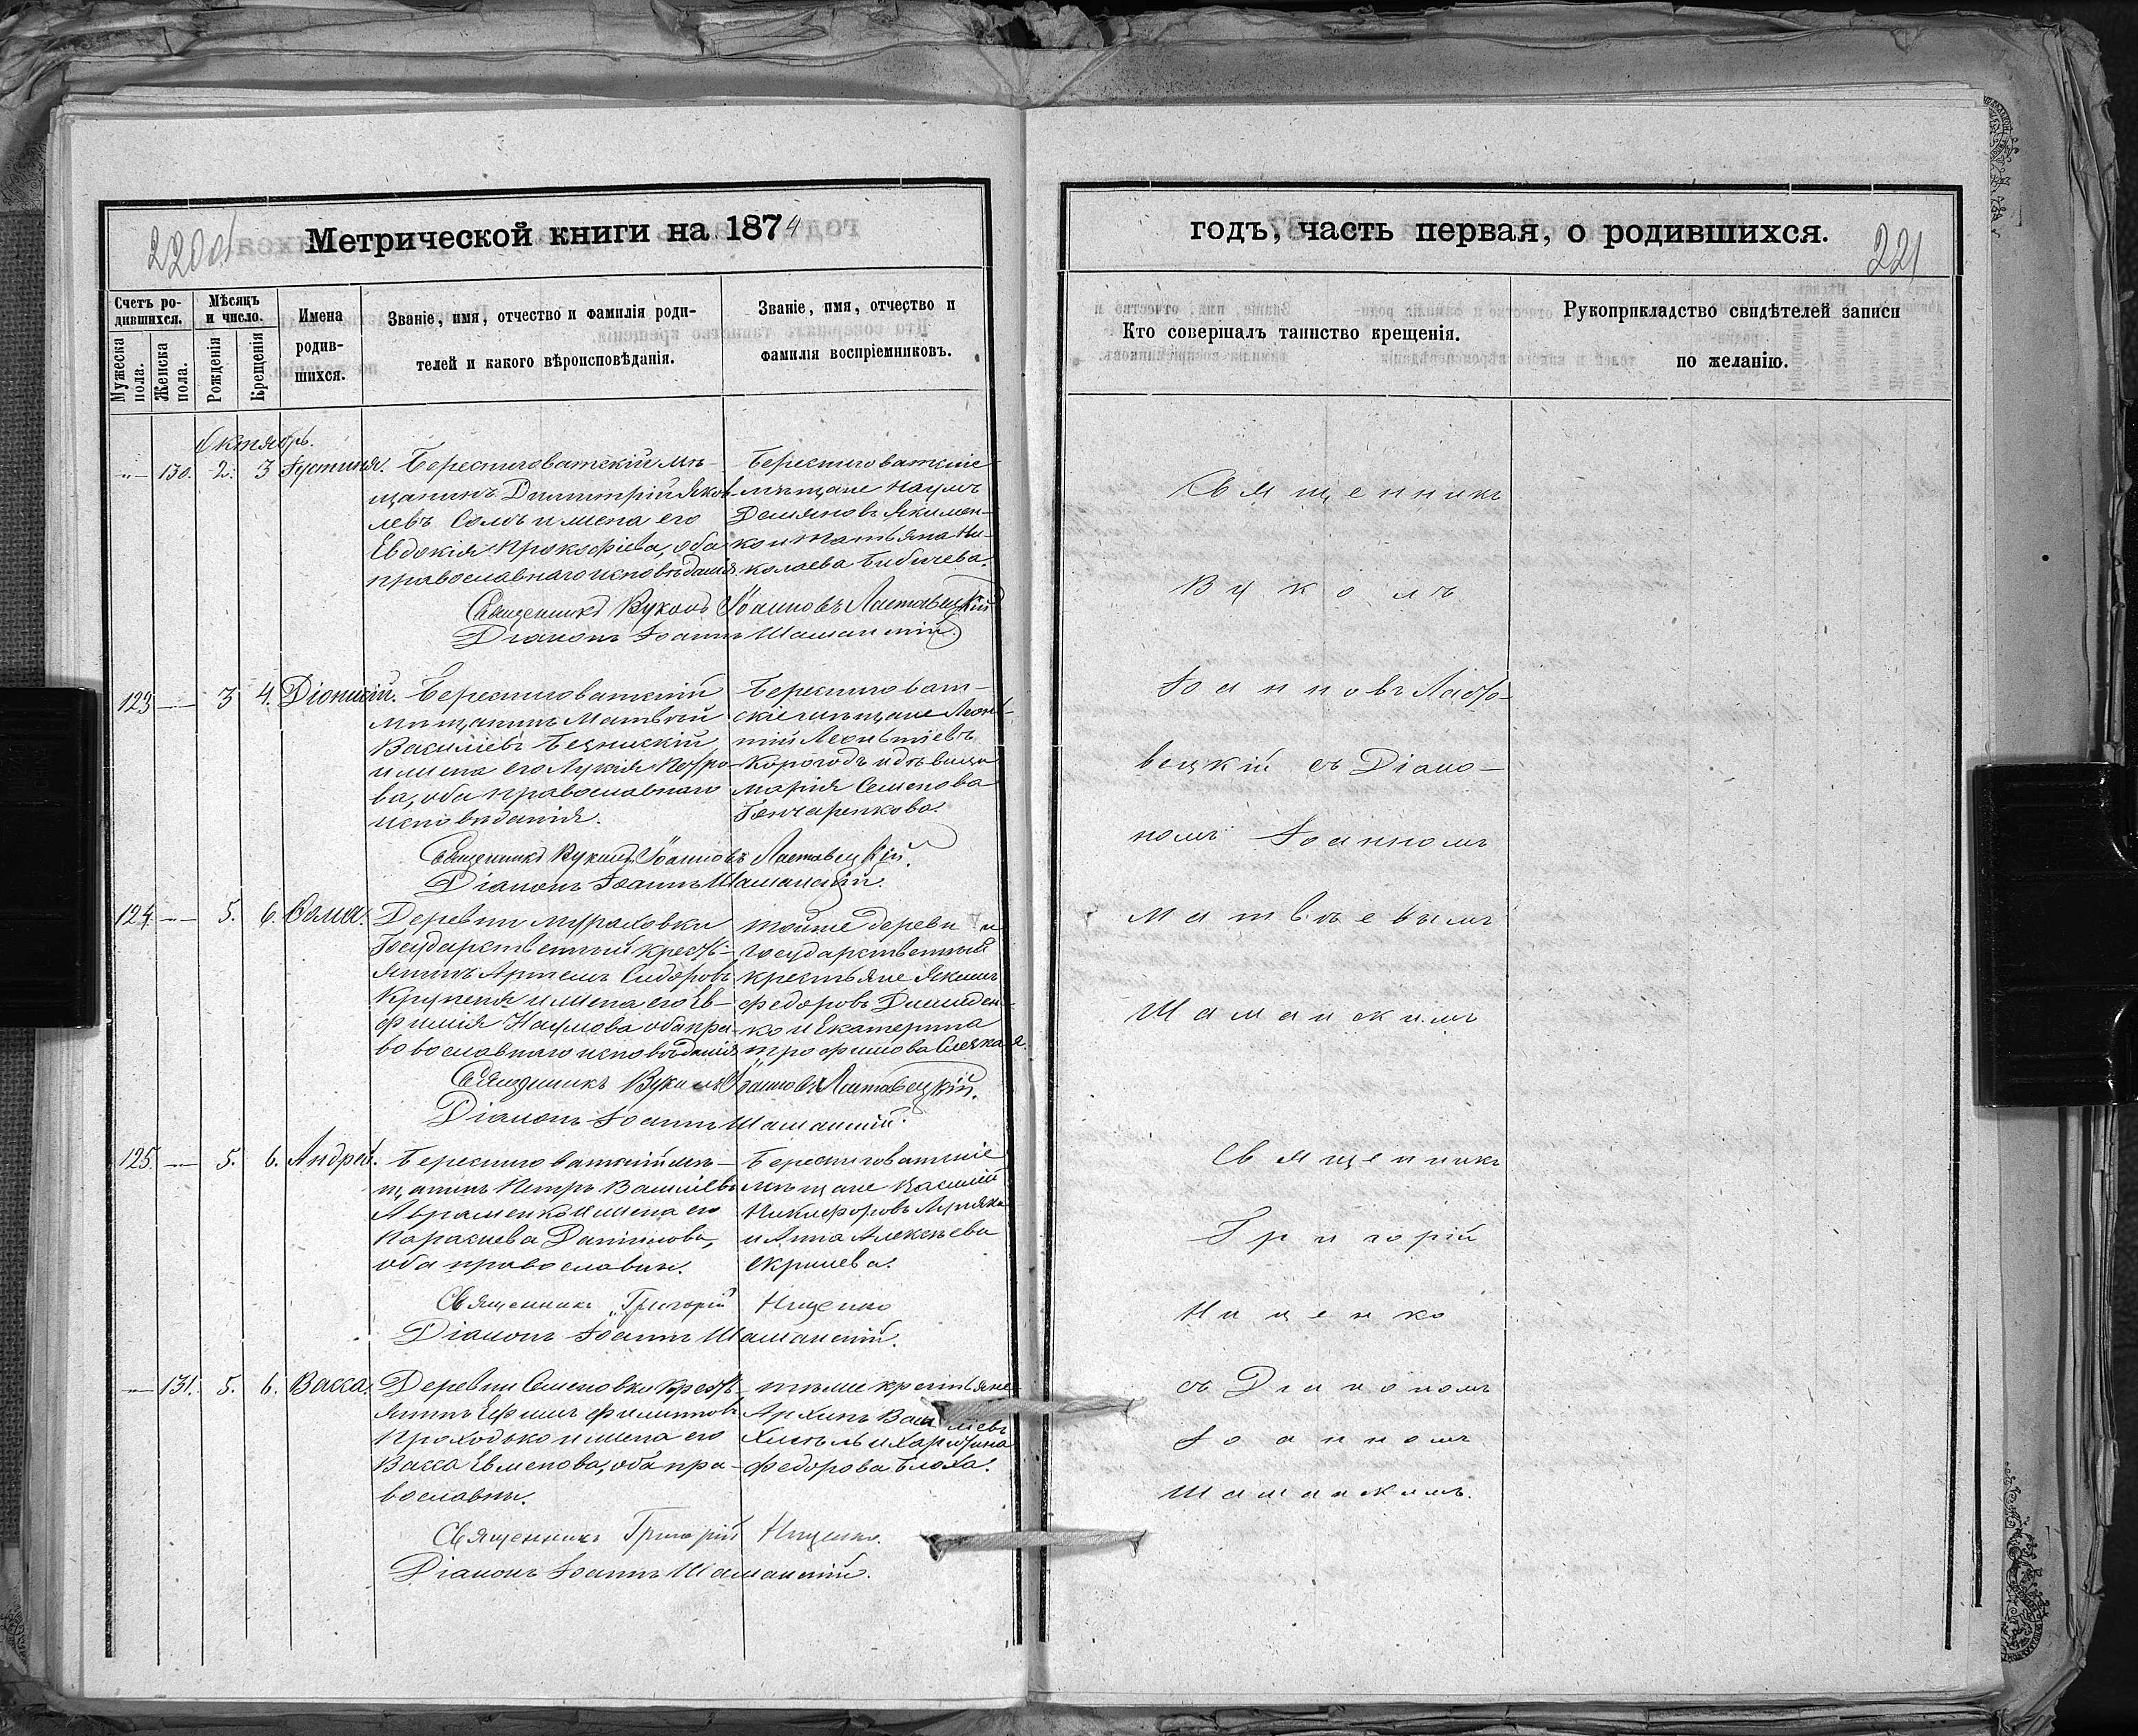 220об
Метрической книги на 1874
Счетъ ро-
дившихся.
Мѣсяцъ
и число.
Имена
родив-
шихся.
Званіе, имя, отчество и фамилія роди-
телей и какого вѣроисповѣданія.
Званіе, имя, отчество и
фамилія воспріемниковъ.
Мужеска
пола.
Женска
пола.
Рожденія
Крещенія
Октябрь.
130. 2. 3 Іустинія.
Берестоватскій мѣ-
щанинъ Димитрій Яков-
левъ Сомъ и жена его
Евдокія Прокофіева, оба
православнаго исповѣданія
Берестоватскіе
мѣщане Наумъ
Демяновъ Якимен-
ко и Татьяна Ни-
колаева Бибичева.
Священникъ Вуколъ Іоанновъ Ластовецкій
Діаконъ Іоаннъ Шаманскій
123 — 3 4. Діонисій.
Берестоватскій
мѣщанинъ Матвѣй
Василіевъ
и жена его Лукія Петро-
ва, оба православнаго
исповѣданія.
Берестоват-
скіе мѣщане Леон-
тій Леонтіевъ
Корогодъ и дѣвица
Марія Семенова
Гончаренкова.
Священникъ Вуколъ Іоанновъ Ластовецкій.
Діаконъ Іоаннъ Шаманскій.
124. — 5. 6. Ѳома.
Деревни Мураховки
Государственный кресть-
янинъ Артемъ Сидоровъ
и жена его Ев-
фимія Наумова оба пра-
вославнаго исповѣданія
тойже деревни
государственный
крестьяне Якимъ
Федоровъ
ко и Екатерина
Трофимова
Священникъ Вуколъ Іоанновъ Ластовецкій.
Діаконъ Іоаннъ Шаманскій.
125. — 5. 6. Андрей.
Берестоватскій мѣ-
щанинъ Петръ Василіевъ
Авраменко и жена его
Параскева Даніилова,
оба православны.
Берестоватскіе
мѣщане Василій
Никифоровъ
и Анна Алексѣева
Священникъ Григорій Нищенко
Діаконъ Іоаннъ Шаманскій.
131. 5. 6. Васса.
Деревни Семеновки Кресть-
янинъ Ефимъ Филиповъ
Проходько и жена его
Васса Евменова, оба пра-
вославны.
тѣже крестьяне
Архипъ Василіевъ
и Харитина
Федорова Блоха.
Священникъ Григорій Нищенко.
Діаконъ Іоаннъ Шаманскій.
годъ, часть первая, о родившихся.
221
Кто совершалъ таинство крещенія.
Рукоприкладство свидѣтелей записи
по желанію.
Священникъ
Вуколъ
Іоанновъ Ласто-
вецкій съ Діако-
номъ Іоанномъ
Матвѣевымъ
Шаманскимъ
Священникъ
Григорій
Нищенко
съ Діакономъ
Іоанномъ
Шаманскимъ.